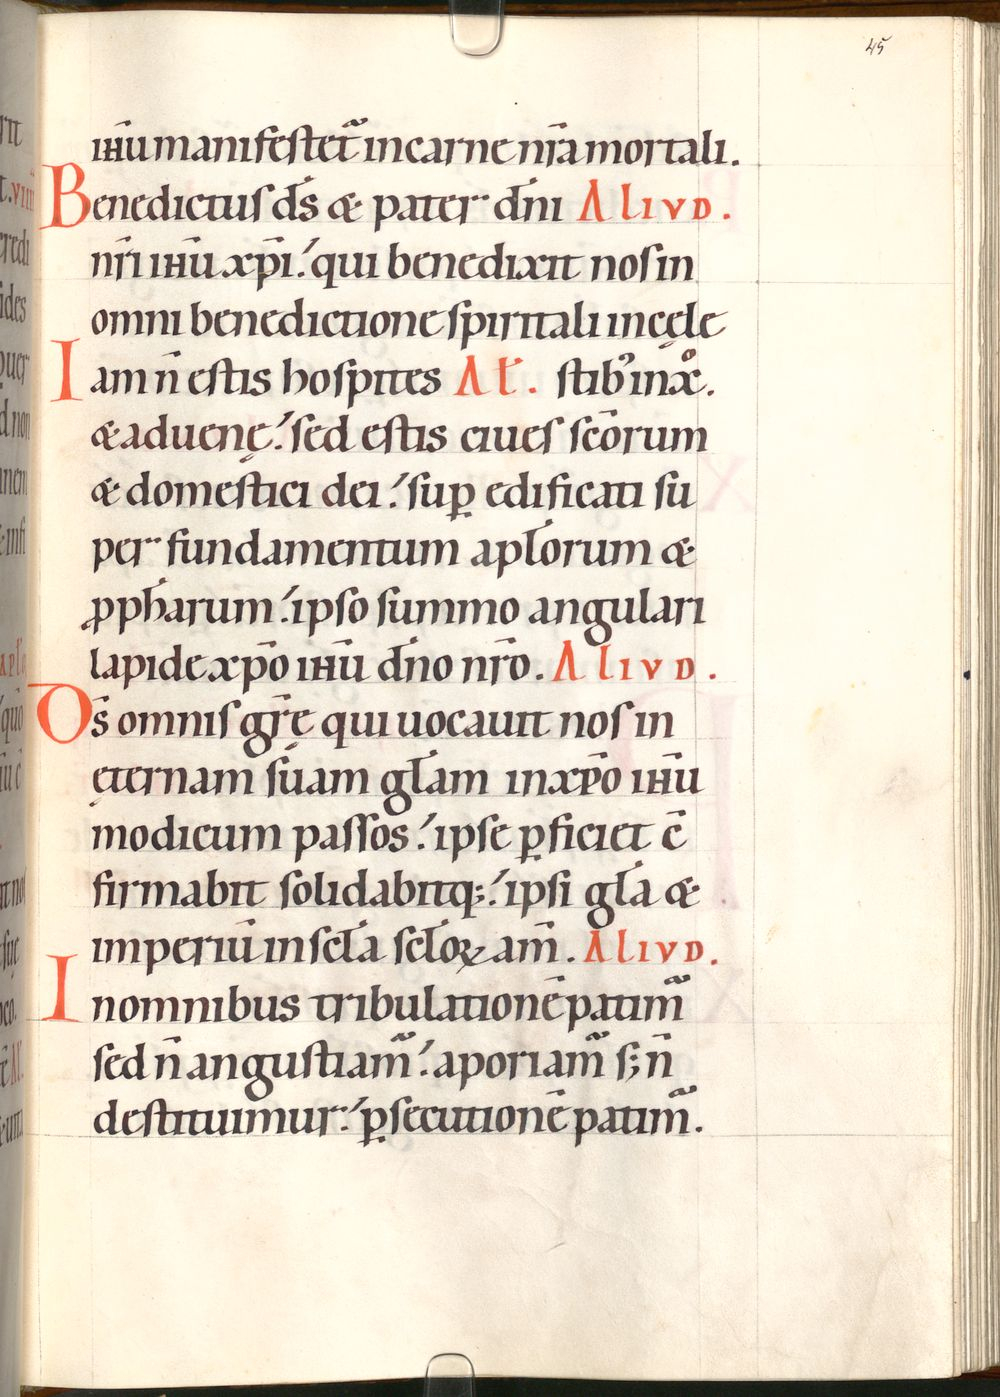 45
ihu̅ manifestet᷑ in carne nr̅a mortali.
Benedictus ds̅ & pater dn̅i ALIVD.
nr̅i ihu̅ xp̅i. qui benedixit nos in
omni benedictione spiritali in cęle
Iam n̅ estis hospites Al̅. stibꝰ in xº.
& aduenę. sed estis ciues sc̅orum
& domestici dei. suꝑ edificati su
per fundamentum apl̅orum &
ꝓph̅arum. ipso summo angulari
lapide xp̅o ihu̅ dn̅o nr̅o. ALIVD.
Ds̅ omnis gr̅ę qui uocauit nos in
ęternam suam gl̅am in xp̅o ihu̅
modicum passos. ipse ꝑficiet c̅
firmabit solidabitq;. ipsi gl̅a &
imperiu̅ in scl̅a scl̅oꝝ am̅. ALIVD.
In omnibus tribulatione̅ patim᷑
sed n̅ angustiam᷑. aporiam᷑ s; n̅
destituimur. ꝑsecutione̅ patim᷑.